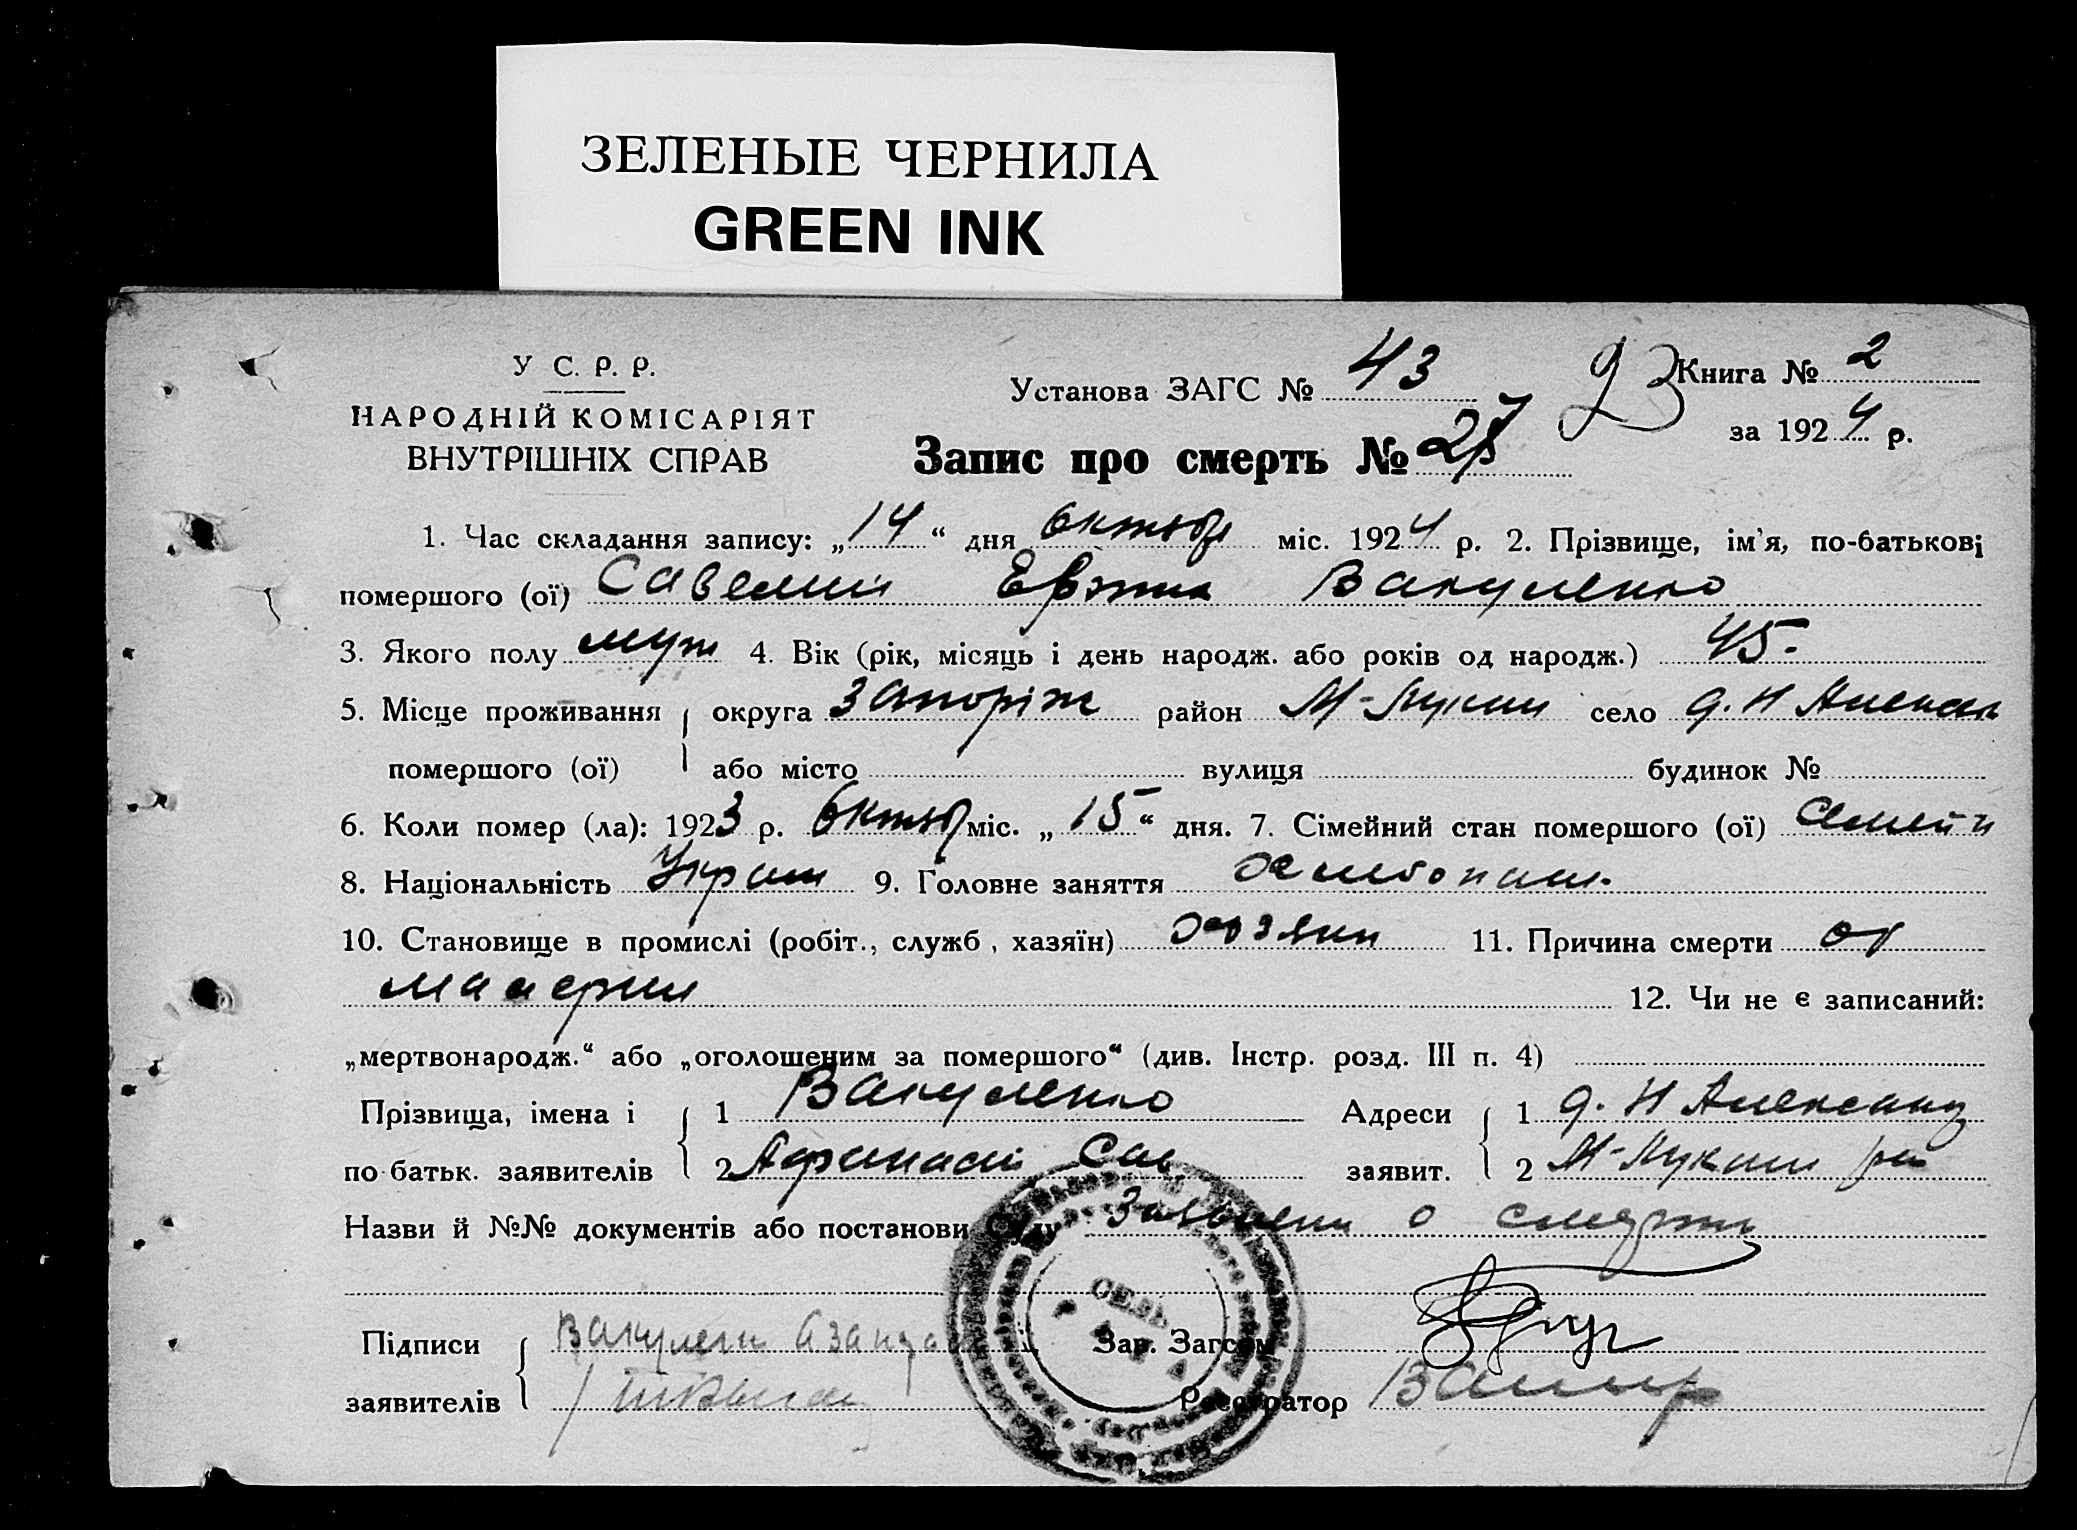 ЗЕЛЕНЫЕ ЧЕРНИЛА
GREEN INK
У С. Р. Р.
НАРОДНІЙ КОМІСАРІЯТ
ВНУТРІШНІХ СПРАВ
Установа ЗАГС № 43
93
Книга № 2
за 1924 р.
Запис про смерть № 27
1. Час складання запису: „14“ дня октяб міс. 1924 р. 2. Прізвище, ім'я, по-батькові
помершого (ої) Савелий Вакуленко
3. Якого полу муж 4. Вік (рік, місяць і день народж. або років од народж.) 45.
5. Місце проживання округа Запоріж район М-Лукаш село д. Н Алексан
помершого (ої) або місто вулиця будинок №
6. Коли помер (ла): 1923 р. Октяб міс. „15“ дня. 7. Сімейний стан помершого (ої) Семейн
8. Національність Украин 9. Головне заняття хлебопаш.
10. Становище в промислі (робіт., служб, хазяїн) хозяин 11. Причина смерти от
малерии 12. Чи не є записаний:
„мертвонародж.“ або „оголошеним за помершого“ (див. Інстр. розд. III п. 4)
Прізвища, імена і 1 Вакуленко Адреси 1 д. Н Александ
по батьк. заявителів 2 Афанасий Сав заявит. 2 М-Лукаш рай
Назви й №№ документів або постанови Суду Заявлени о смерти
Підписи Вакулени Зав. Загсом
заявителів Реєстратор
СЕЛЬ
РАДА